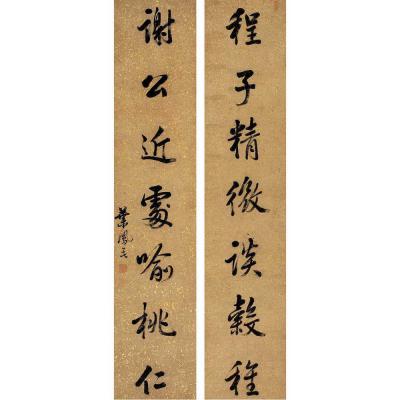 程子精微談穀種
謝公近處喻桃仁
葉鳳